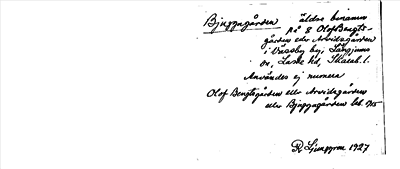 Bjuggagården äldre binamn
på 8 Olof Bengts-
gården eller Arvidsgården
i Vässby by, Längjums
sn, Laske hd, Skarab. l.
Användes ej numera
Olof Bengtsgården eller Arvidsgården
eller Bjuggagården bet. 1715
R Ljunggren 1927